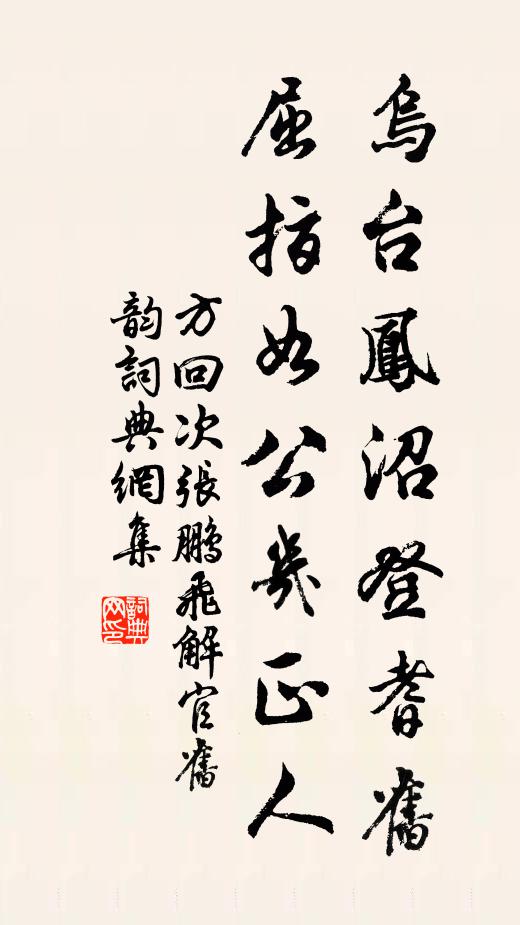 烏台鳳沼登耆舊
屈指如公幾正人
方回次張鵬飛解官舊
韵詞典網集
詞典網印